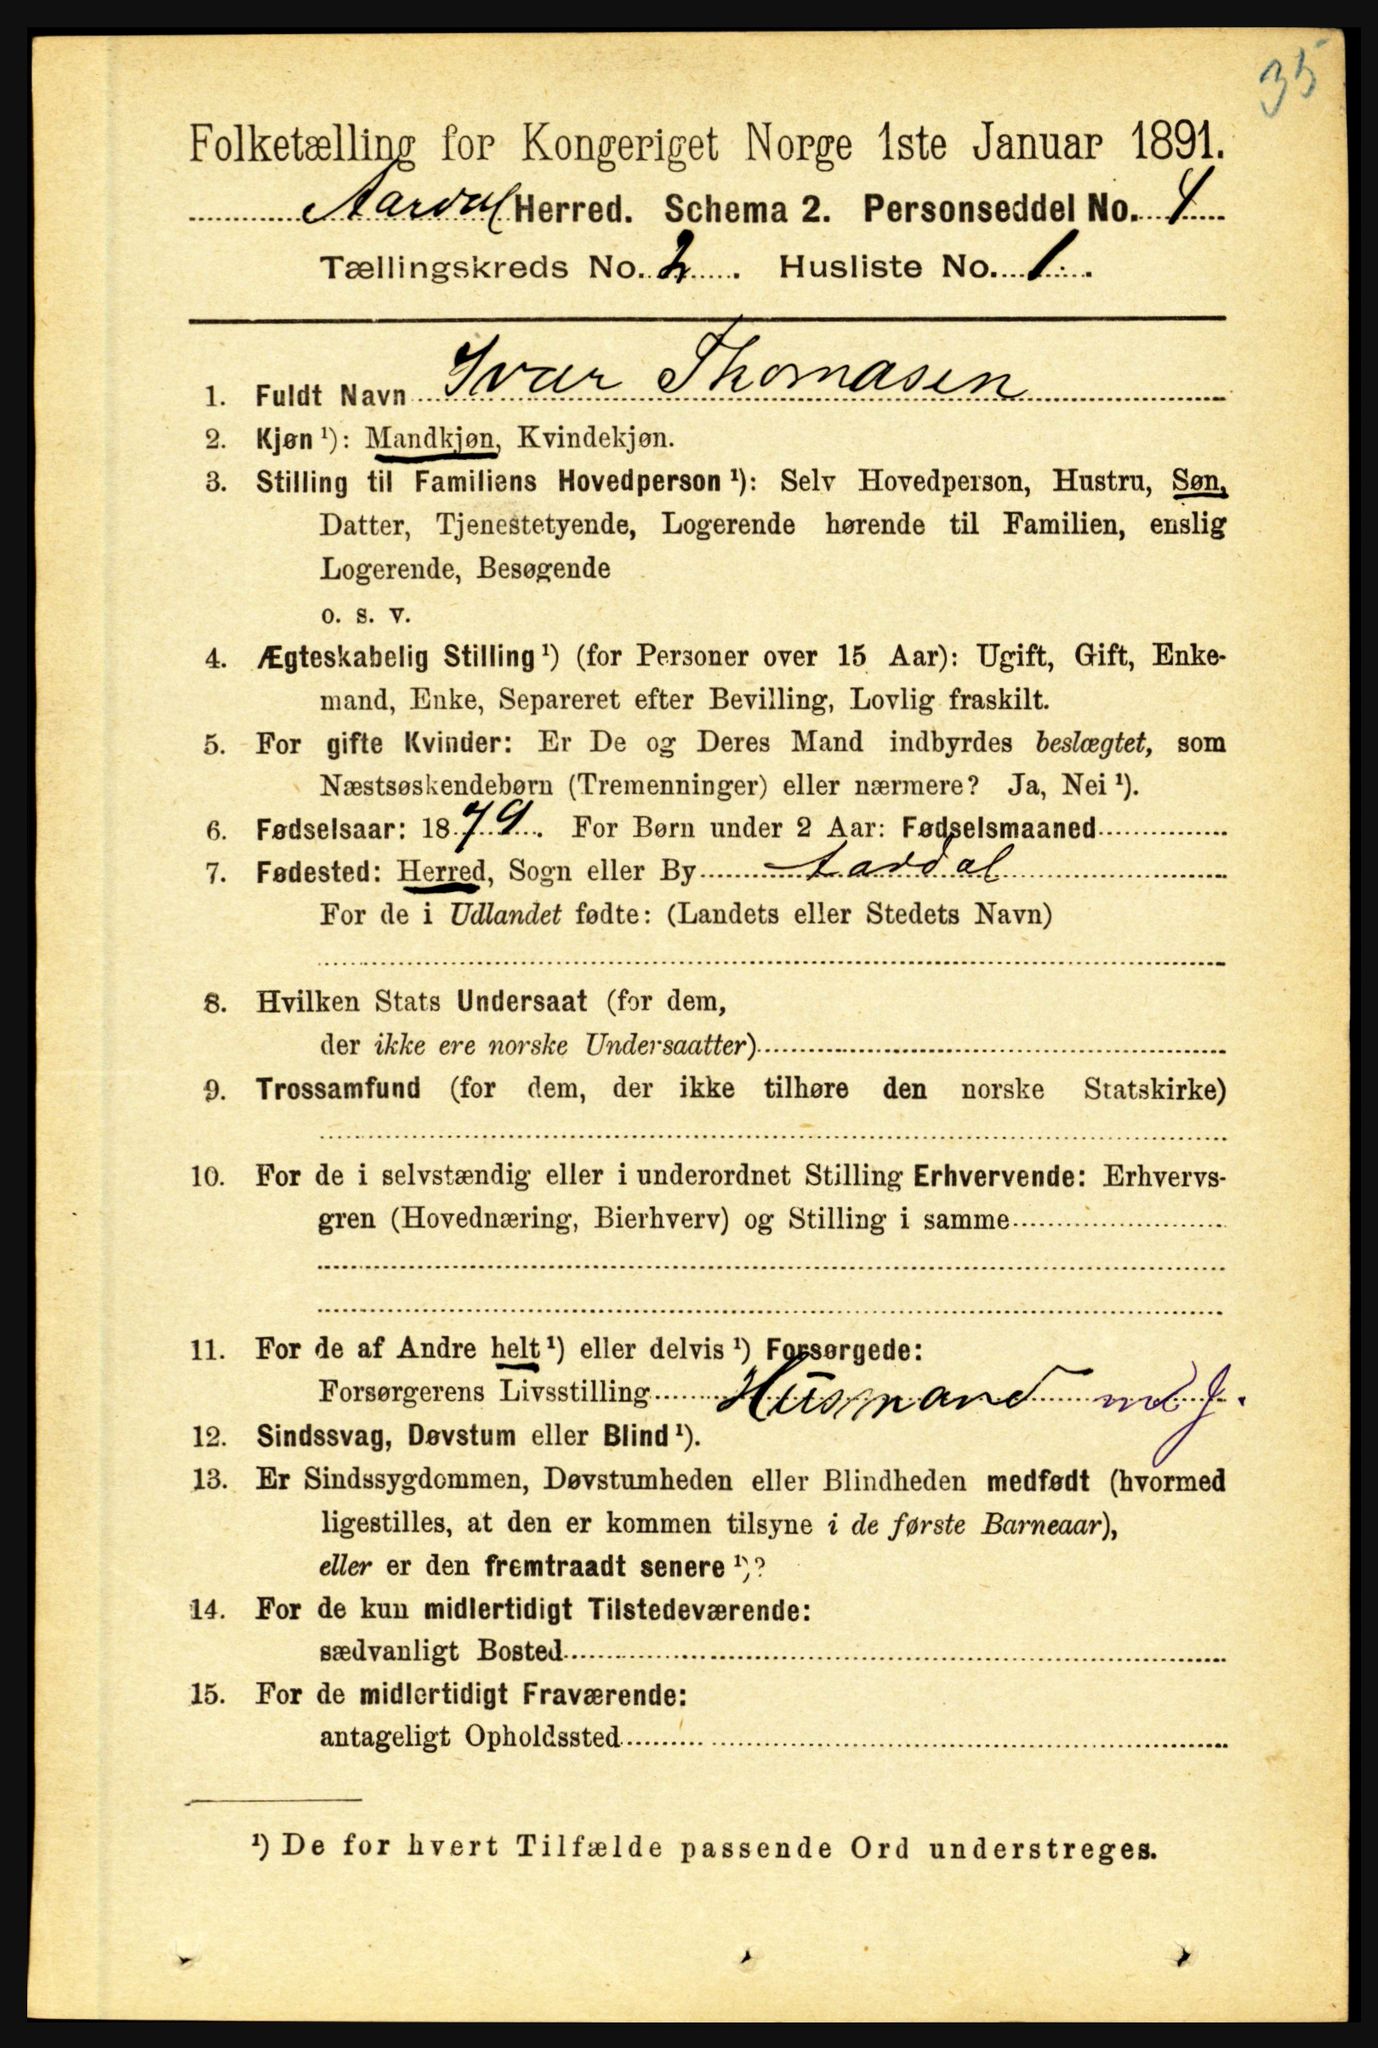 35
Folketælling for Kongeriget Norge 1ste Januar 1891.
Aardal Herred. Schema 2. Personseddel No. 4
Tællingskreds No. 2. Husliste No. 1.
1. Fuldt Navn Ivar Thomasen
2. Kjøn ¹): Mandkjøn, Kvindekjøn.
3. Stilling til Familiens Hovedperson ¹): Selv Hovedperson, Hustru, Søn,
Datter, Tjenestetyende, Logerende hørende til Familien, enslig
Logerende, Besøgende
o. s. v.
4. Ægteskabelig Stilling ¹) (for Personer over 15 Aar): Ugift, Gift, Enke-
mand, Enke, Separeret efter Bevilling, Lovlig fraskilt.
5. For gifte Kvinder: Er De og Deres Mand indbyrdes beslægtet, som
Næstsøskendebørn (Tremenninger) eller nærmere? Ja, Nei ¹).
6. Fødselsaar: 1879. For Børn under 2 Aar: Fødselsmaaned
7. Fødested: Herred, Sogn eller By Aardal
For de i Udlandet fødte: (Landets eller Stedets Navn)
8. Hvilken Stats Undersaat (for dem,
der ikke ere norske Undersaatter)
9. Trossamfund (for dem, der ikke tilhøre den norske Statskirke)
10. For de i selvstændig eller i underordnet Stilling Erhvervende: Erhvervs-
gren (Hovednæring, Bierhverv) og Stilling i samme
11. For de af Andre helt ¹) eller delvis ¹) Forsørgede:
Forsørgerens Livsstilling Husmand m J.
12. Sindssvag, Døvstum eller Blind ¹).
13. Er Sindssygdommen, Døvstumheden eller Blindheden medfødt (hvormed
ligestilles, at den er kommen tilsyne i de første Barneaar),
eller er den fremtraadt senere ¹)?
14. For de kun midlertidigt Tilstedeværende:
sædvanligt Bosted
15. For de midlertidigt Fraværende:
antageligt Opholdssted
¹) De for hvert Tilfælde passende Ord understreges.